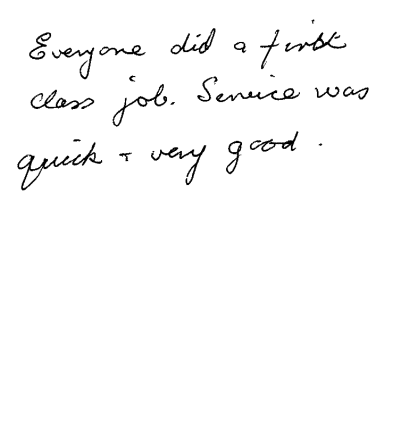 Everyone did a first
class job. Service was
quick + very good.